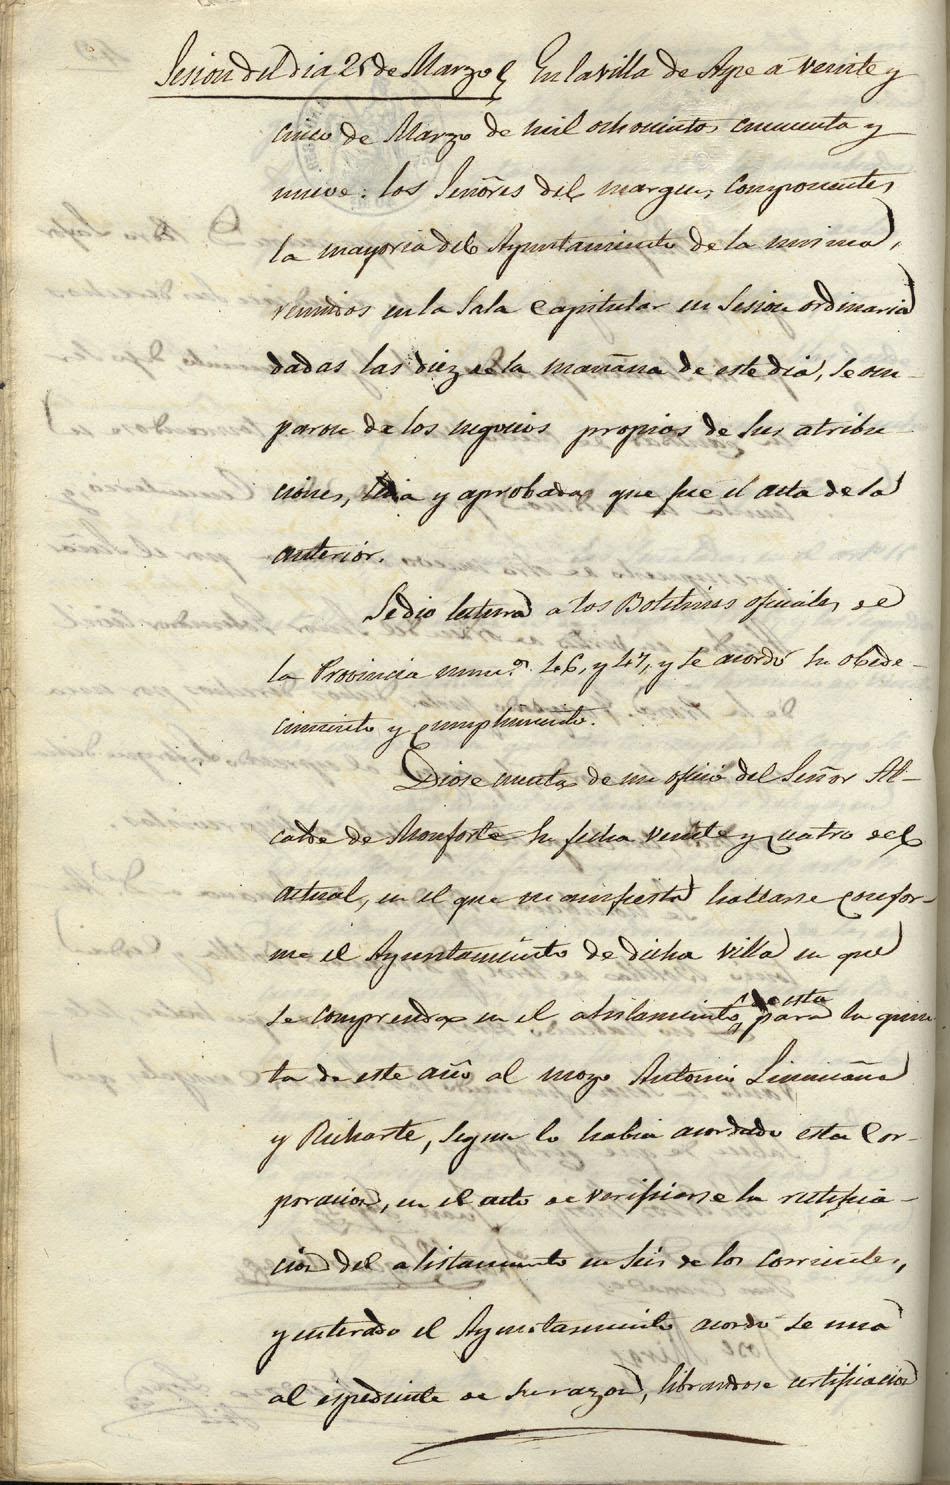 Sesion del dia 25 de Marzo En la villa de Aspe á veinte y
cinco de Marzo de mil ochocientos cincuenta y
nueve: los Señores del margen, componentes
la mayoria del Ayuntamiento de la misma,
reunidos en la Sala Capitular en Sesion ordinaria
dadas las diez de la mañana de este dia, se ocu-
paron de los negocios propios de sus atribu
ciones, leida y aprobada que fue el acta de la
anterior.
Se dio lectura a los Boletines oficiales de
la Provincia numºs. 46, y 47, y se acordó su obede-
cimiento y cumplimiento.
Diose cuenta de un oficio del Señor Al-
calde de Monforte su fecha veinte y cuatro del
actual, en el que manifiesta hallarse confor-
me el Ayuntamiento de dicha villa en que
se comprenda en el alistamiento de esta para la quin-
ta de este año al mozo Antonio Limiñana
y Richarte, segun lo habia acordado esta Cor-
poracion, en el acto de verificarse la rectifica-
cion del alistamiento en seis de los corrientes,
y enterado el Ayuntamiento acordó se una
al espediente de su razon, librandose certificacion